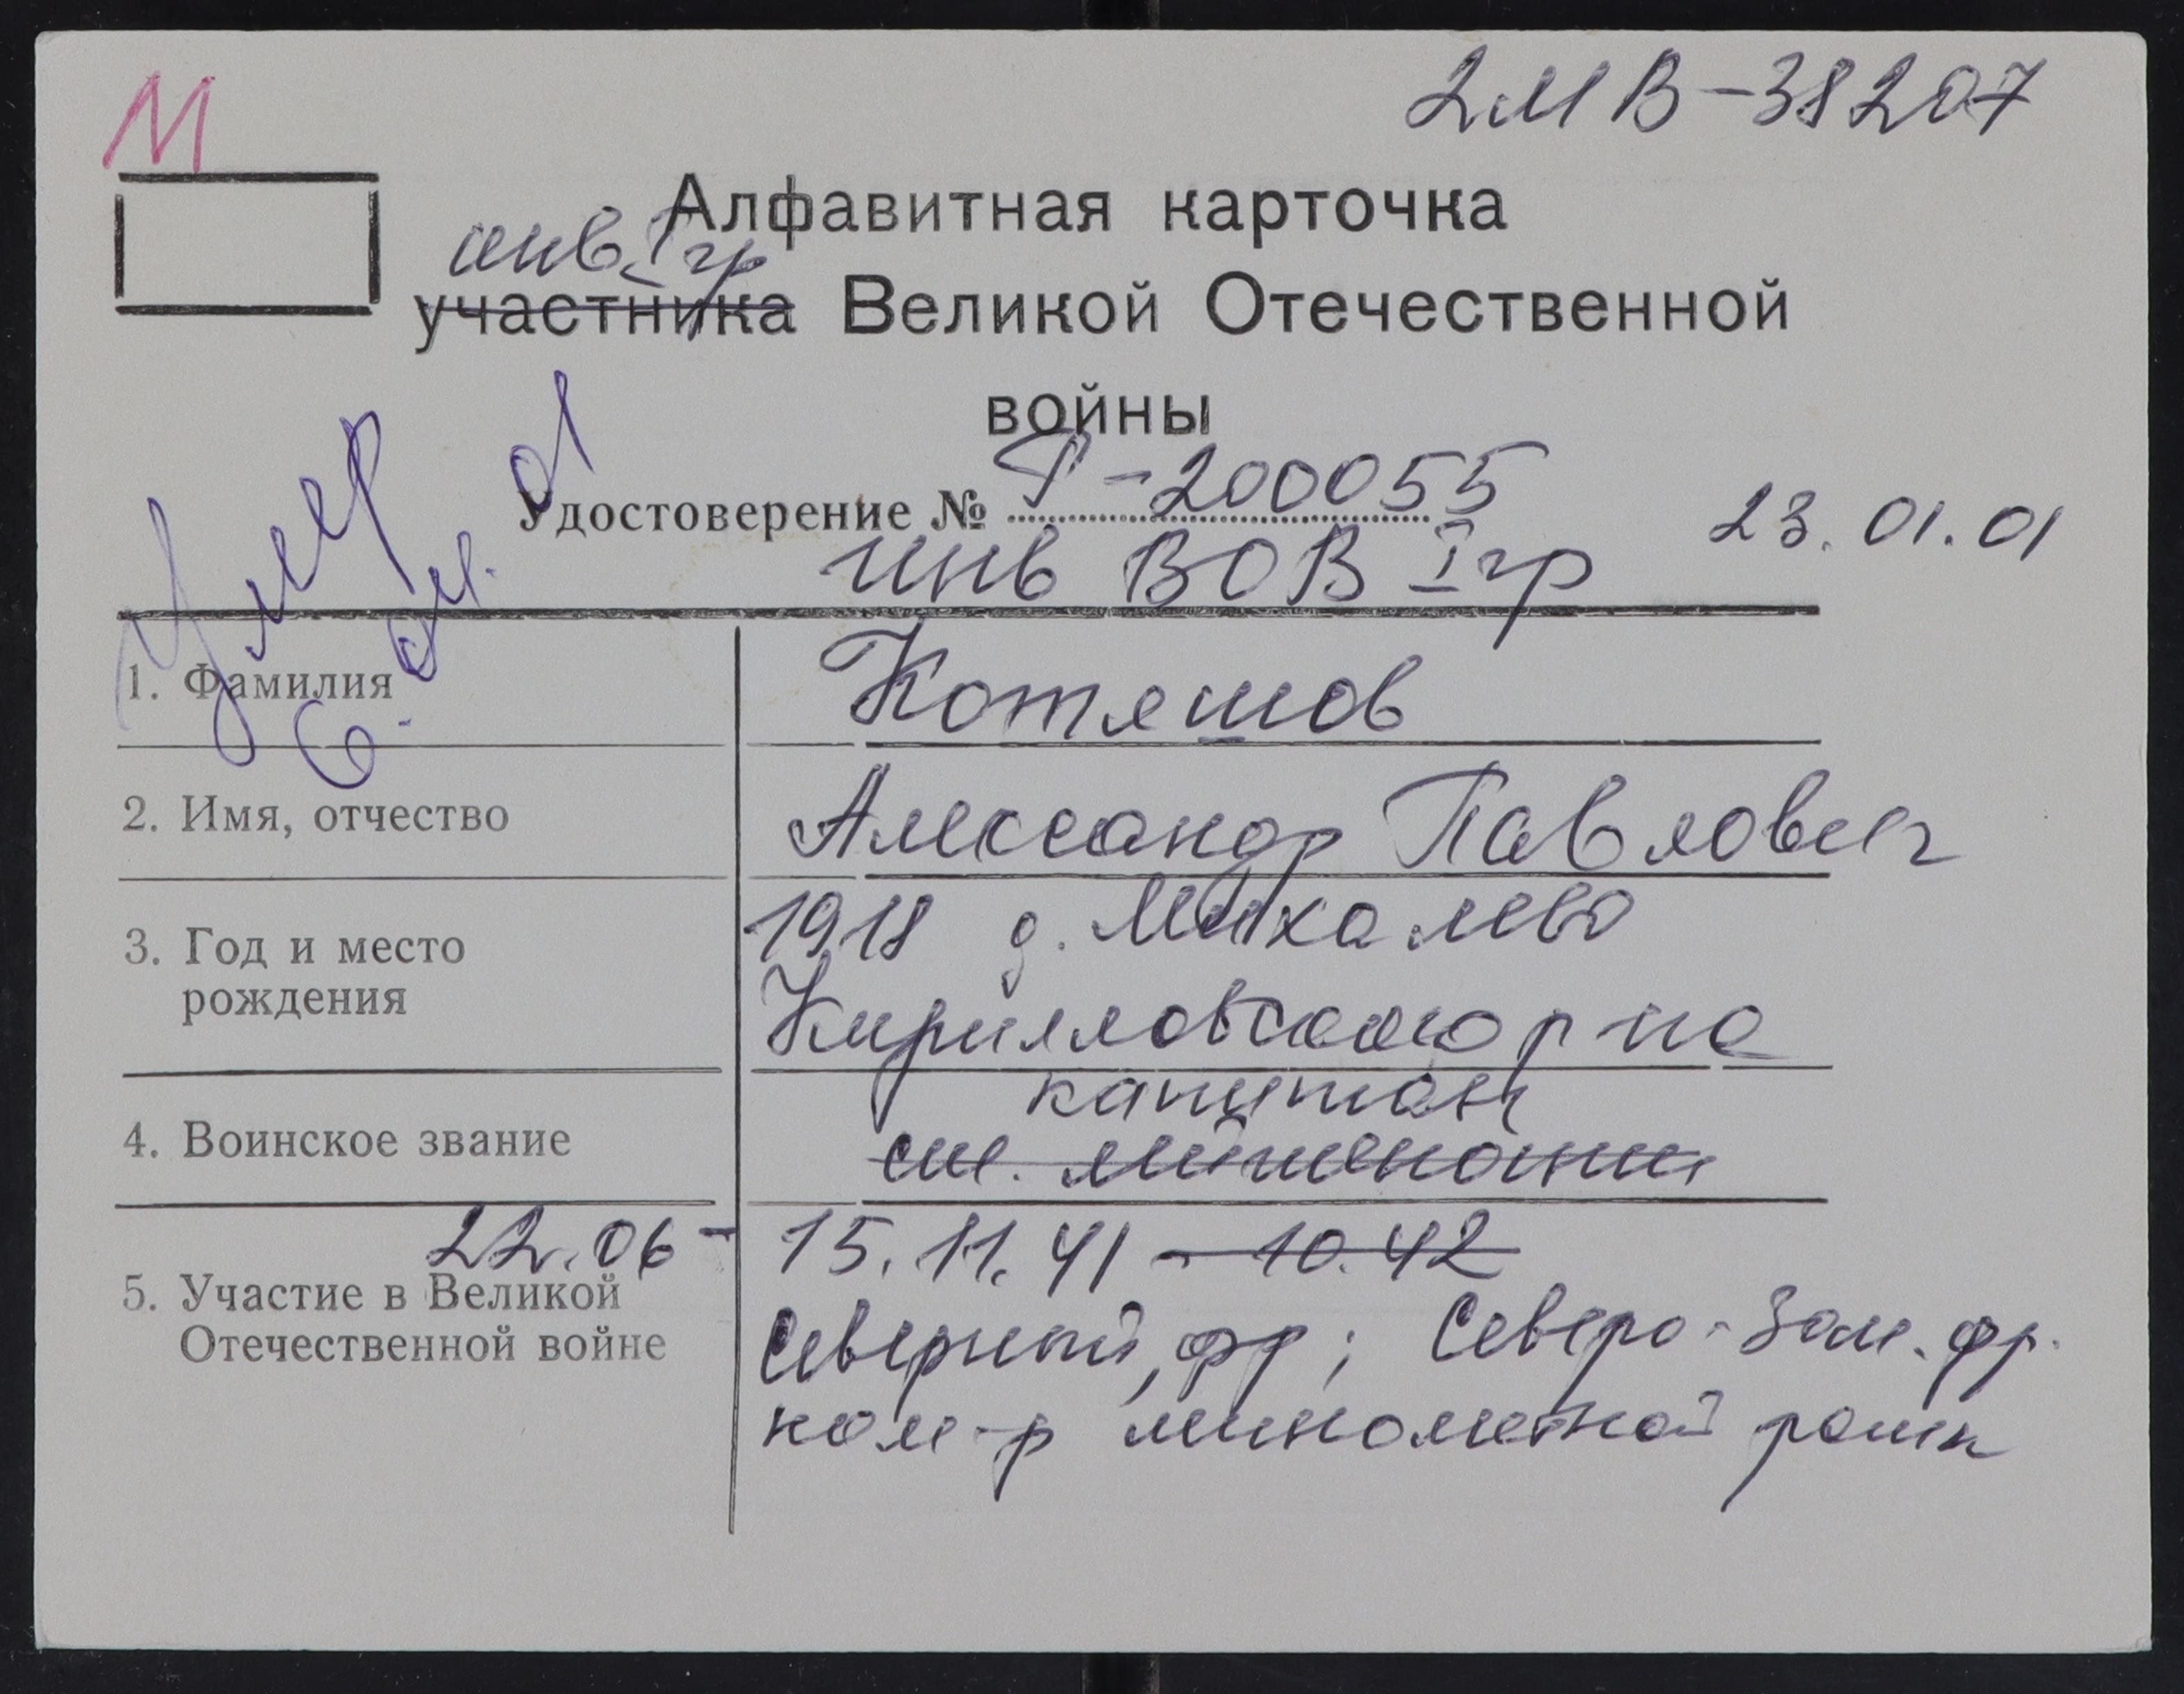 М
2МВ-38207
Алфавитная карточка
инв. I гр
участника Великой Отечественной
войны
Удостоверение № Р-200055 23.01.01
инв ВОВ I гр
Умер
1. Фамилия Котяшов
2. Имя, отчество Александр Павлович
3. Год и место рождения 1918 д. Михалево
Кирилловского р-на
капитан
4. Воинское звание ст. лейтенант
22.06 - 15.11.41 - 10.42
5. Участие в Великой
Отечественной войне Северный фр; Северо-Зап. фр.
ком-р минометной роты